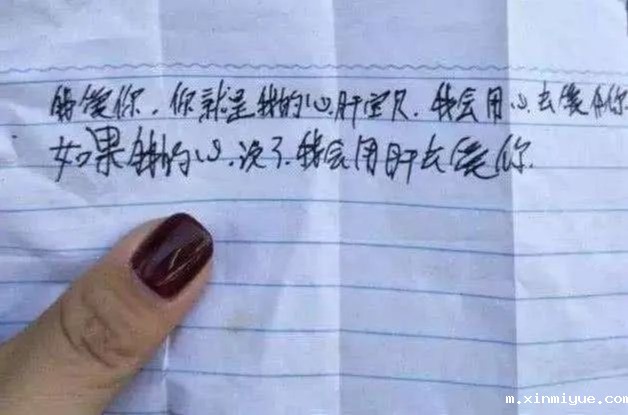 我爱你,你就是我的心肝宝贝,我会用心去爱你
如果我的心没了,我会用肝去爱你.
m.xinmiyue.com